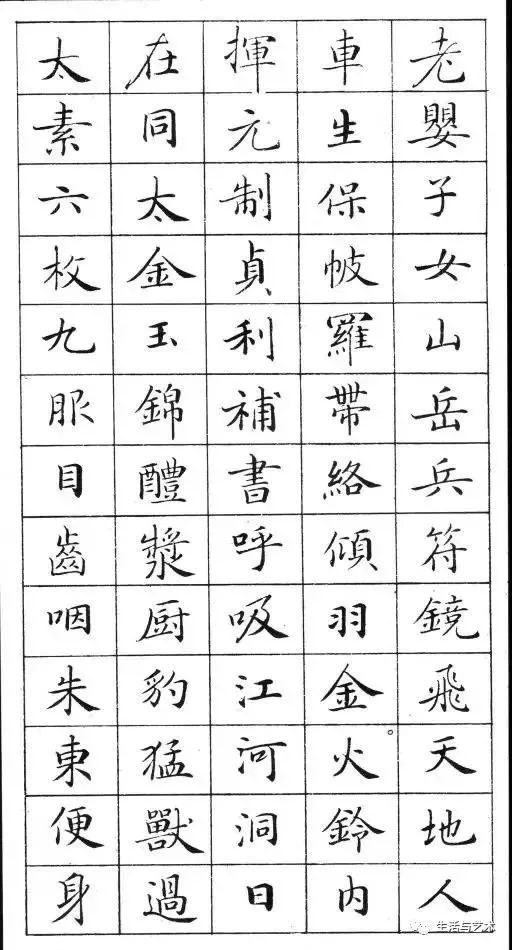 老嬰子女山岳兵符鏡飛天地人
車生保帔羅帶絡傾羽金火鈴内
揮元制貞利補書呼吸江河洞日
在同太金玉錦醴漿厨豹猛獸過
太素六枚九服目齒咽朱東便身
生活与艺术